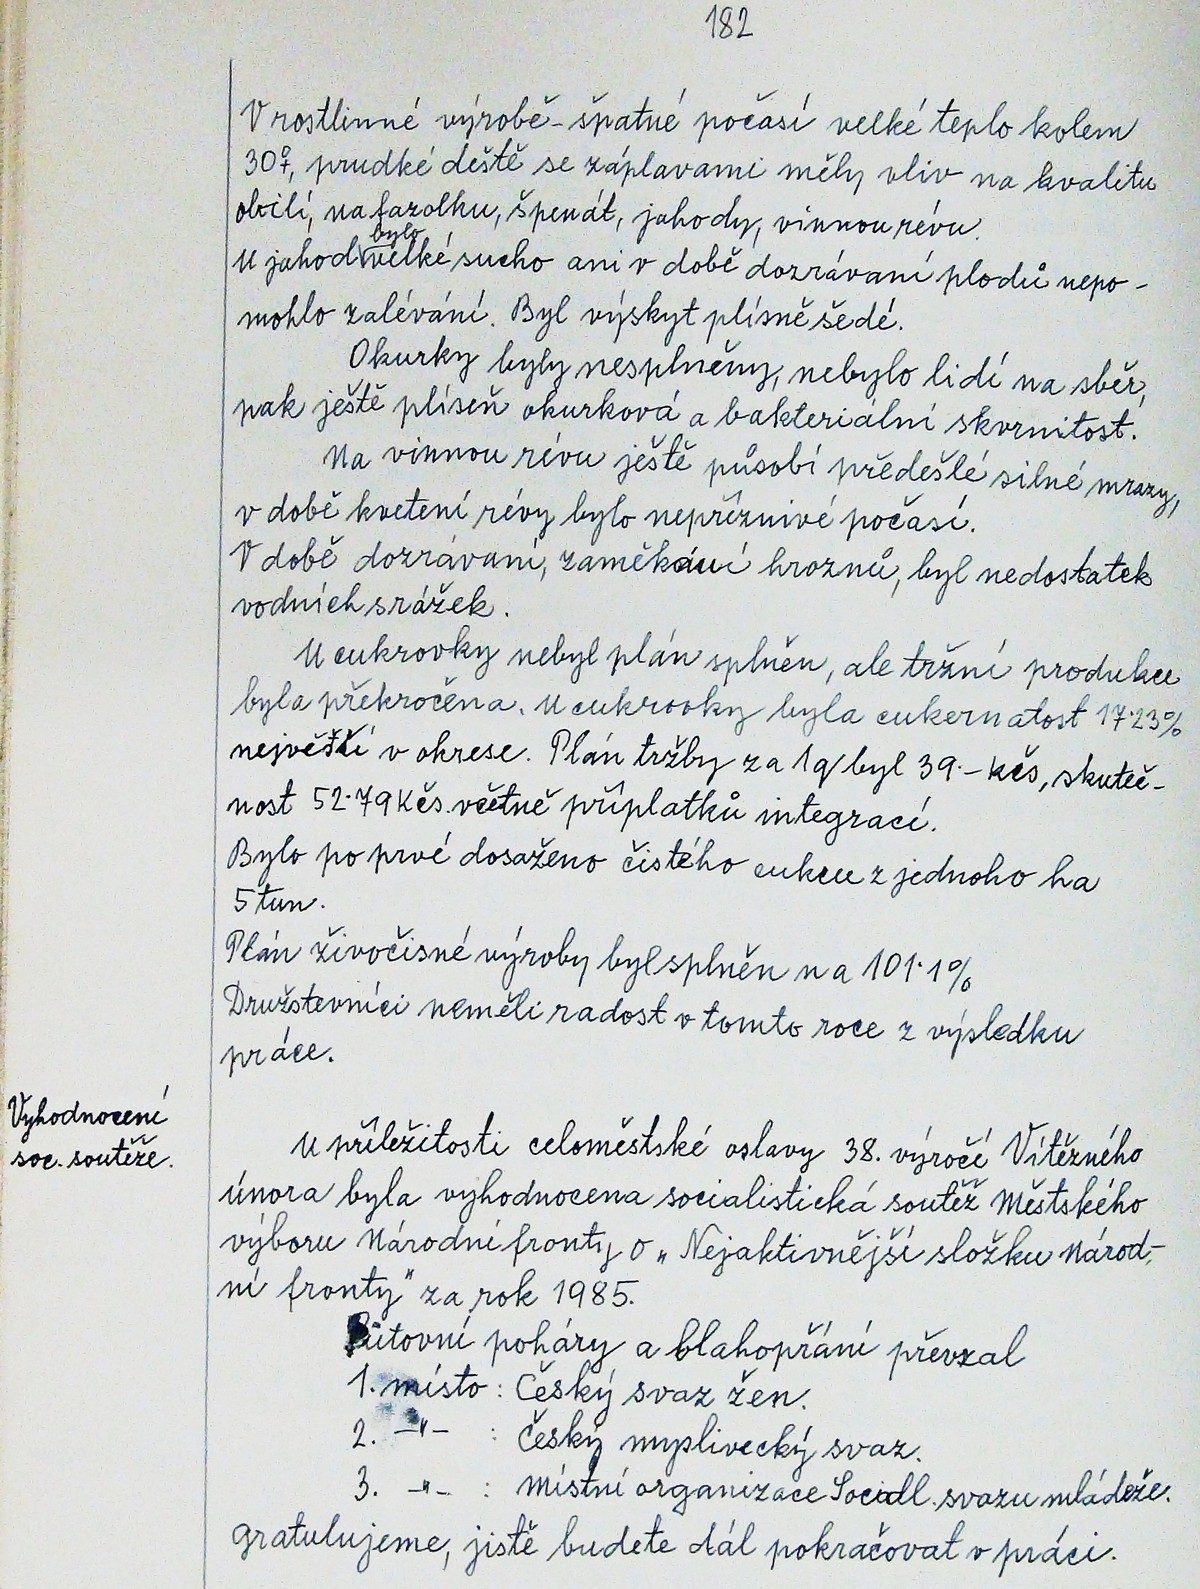 182
V rostlinné výrobě - špatné počasí velké teplo kolem
30°, prudké deště se záplavami měly vliv na kvalitu
obilí, na fazolku, špenát, jahody, vinnou révu.
U jahod bylo velké sucho ani v době dozrávaní plodů nepo-
mohlo zalévání. Byl výskyt plísně šedé.
Okurky byly nesplněny, nebylo lidí na sběr,
pak ještě plíseň okurková a bakteriální skvrnitost.
Na vinnou révu ještě působí předešlé silné mrazy,
v době kvetení révy bylo nepříznivé počasí.
V době dozrávaní, zaměkání hroznů, byl nedostatek
vodních srážek.
U cukrovky nebyl plán splněn, ale tržní produkce
byla překročena. U cukrovky byla cukernatost 17·23%
největší v okrese. Plán tržby za 1q byl 39.- kčs, skuteč-
nost 52·79 Kčs včetně příplatků integrací.
Bylo po prvé dosaženo čistého cukru z jednoho ha
5 tun.
Plán živočisné výroby byl splněn na 101·1%
Družstevníci neměli radost v tomto roce z výsledku
práce.
Vyhodnocení
soc. soutěže.
U příležitosti celoměstské oslavy 38. výročí Vítězného
února byla vyhodnocena socialistická soutěž Městského
výboru Národní fronty o „Nejaktivnější složku Národ-
ní fronty" za rok 1985.
Putovní poháry a blahopřání převzal
1. místo : Český svaz žen.
2. -"- : Český myslivecký svaz.
3. -"- : Místní organizace Sociál. svazu mládeže.
Gratulujeme, jistě budete dál pokračovat v práci.